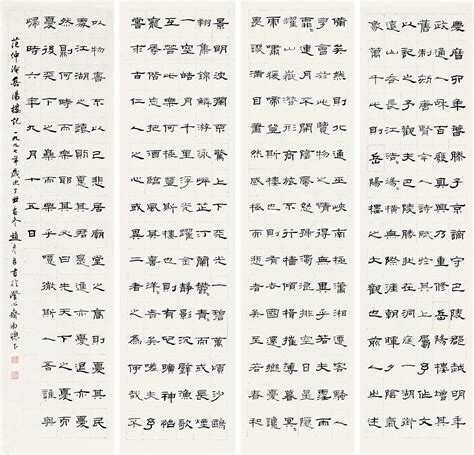 慶曆四年春滕子京謫守巴陵郡越明年
政通人和百廢具興乃重修岳陽樓增其
舊制刻唐賢今人詩賦於其上屬予作文
以記之予觀夫巴陵勝狀在洞庭一湖銜
遠山吞長江浩浩湯湯橫無際涯朝暉夕陰氣
象萬千此則岳陽樓之大觀也前人之述
備矣然則北通巫峽南極瀟湘遷客騷人
多會於此覽物之情得無異乎若夫霪雨
霏霏連月不開陰風怒號濁浪排空日星隱
耀山岳潛形商旅不行檣傾楫摧薄暮冥冥
虎嘯猿啼登斯樓也則有去國懷鄉憂讒
畏譏滿目蕭然感極而悲者矣至若春和
景明波瀾不驚上下天光一碧萬頃沙鷗
翔集錦鱗游泳岸芷汀蘭郁郁青青而或長煙
一空皓月千里浮光躍金靜影沉璧漁歌
互答此樂何極登斯樓也則有心曠神怡
寵辱偕忘把酒臨風其喜洋洋者矣嗟夫予
嘗求古仁人之心或異二者之為何哉不
以物喜不以己悲居廟堂之高則憂其民
處江湖之遠則憂其君是進亦憂退亦憂
然則何時而樂耶其必曰先天下之憂而
憂後天下之樂而樂歟噫微斯人吾誰與
歸時六年九月十五日
范仲淹岳陽樓記一九九七年歲次丁丑 書於